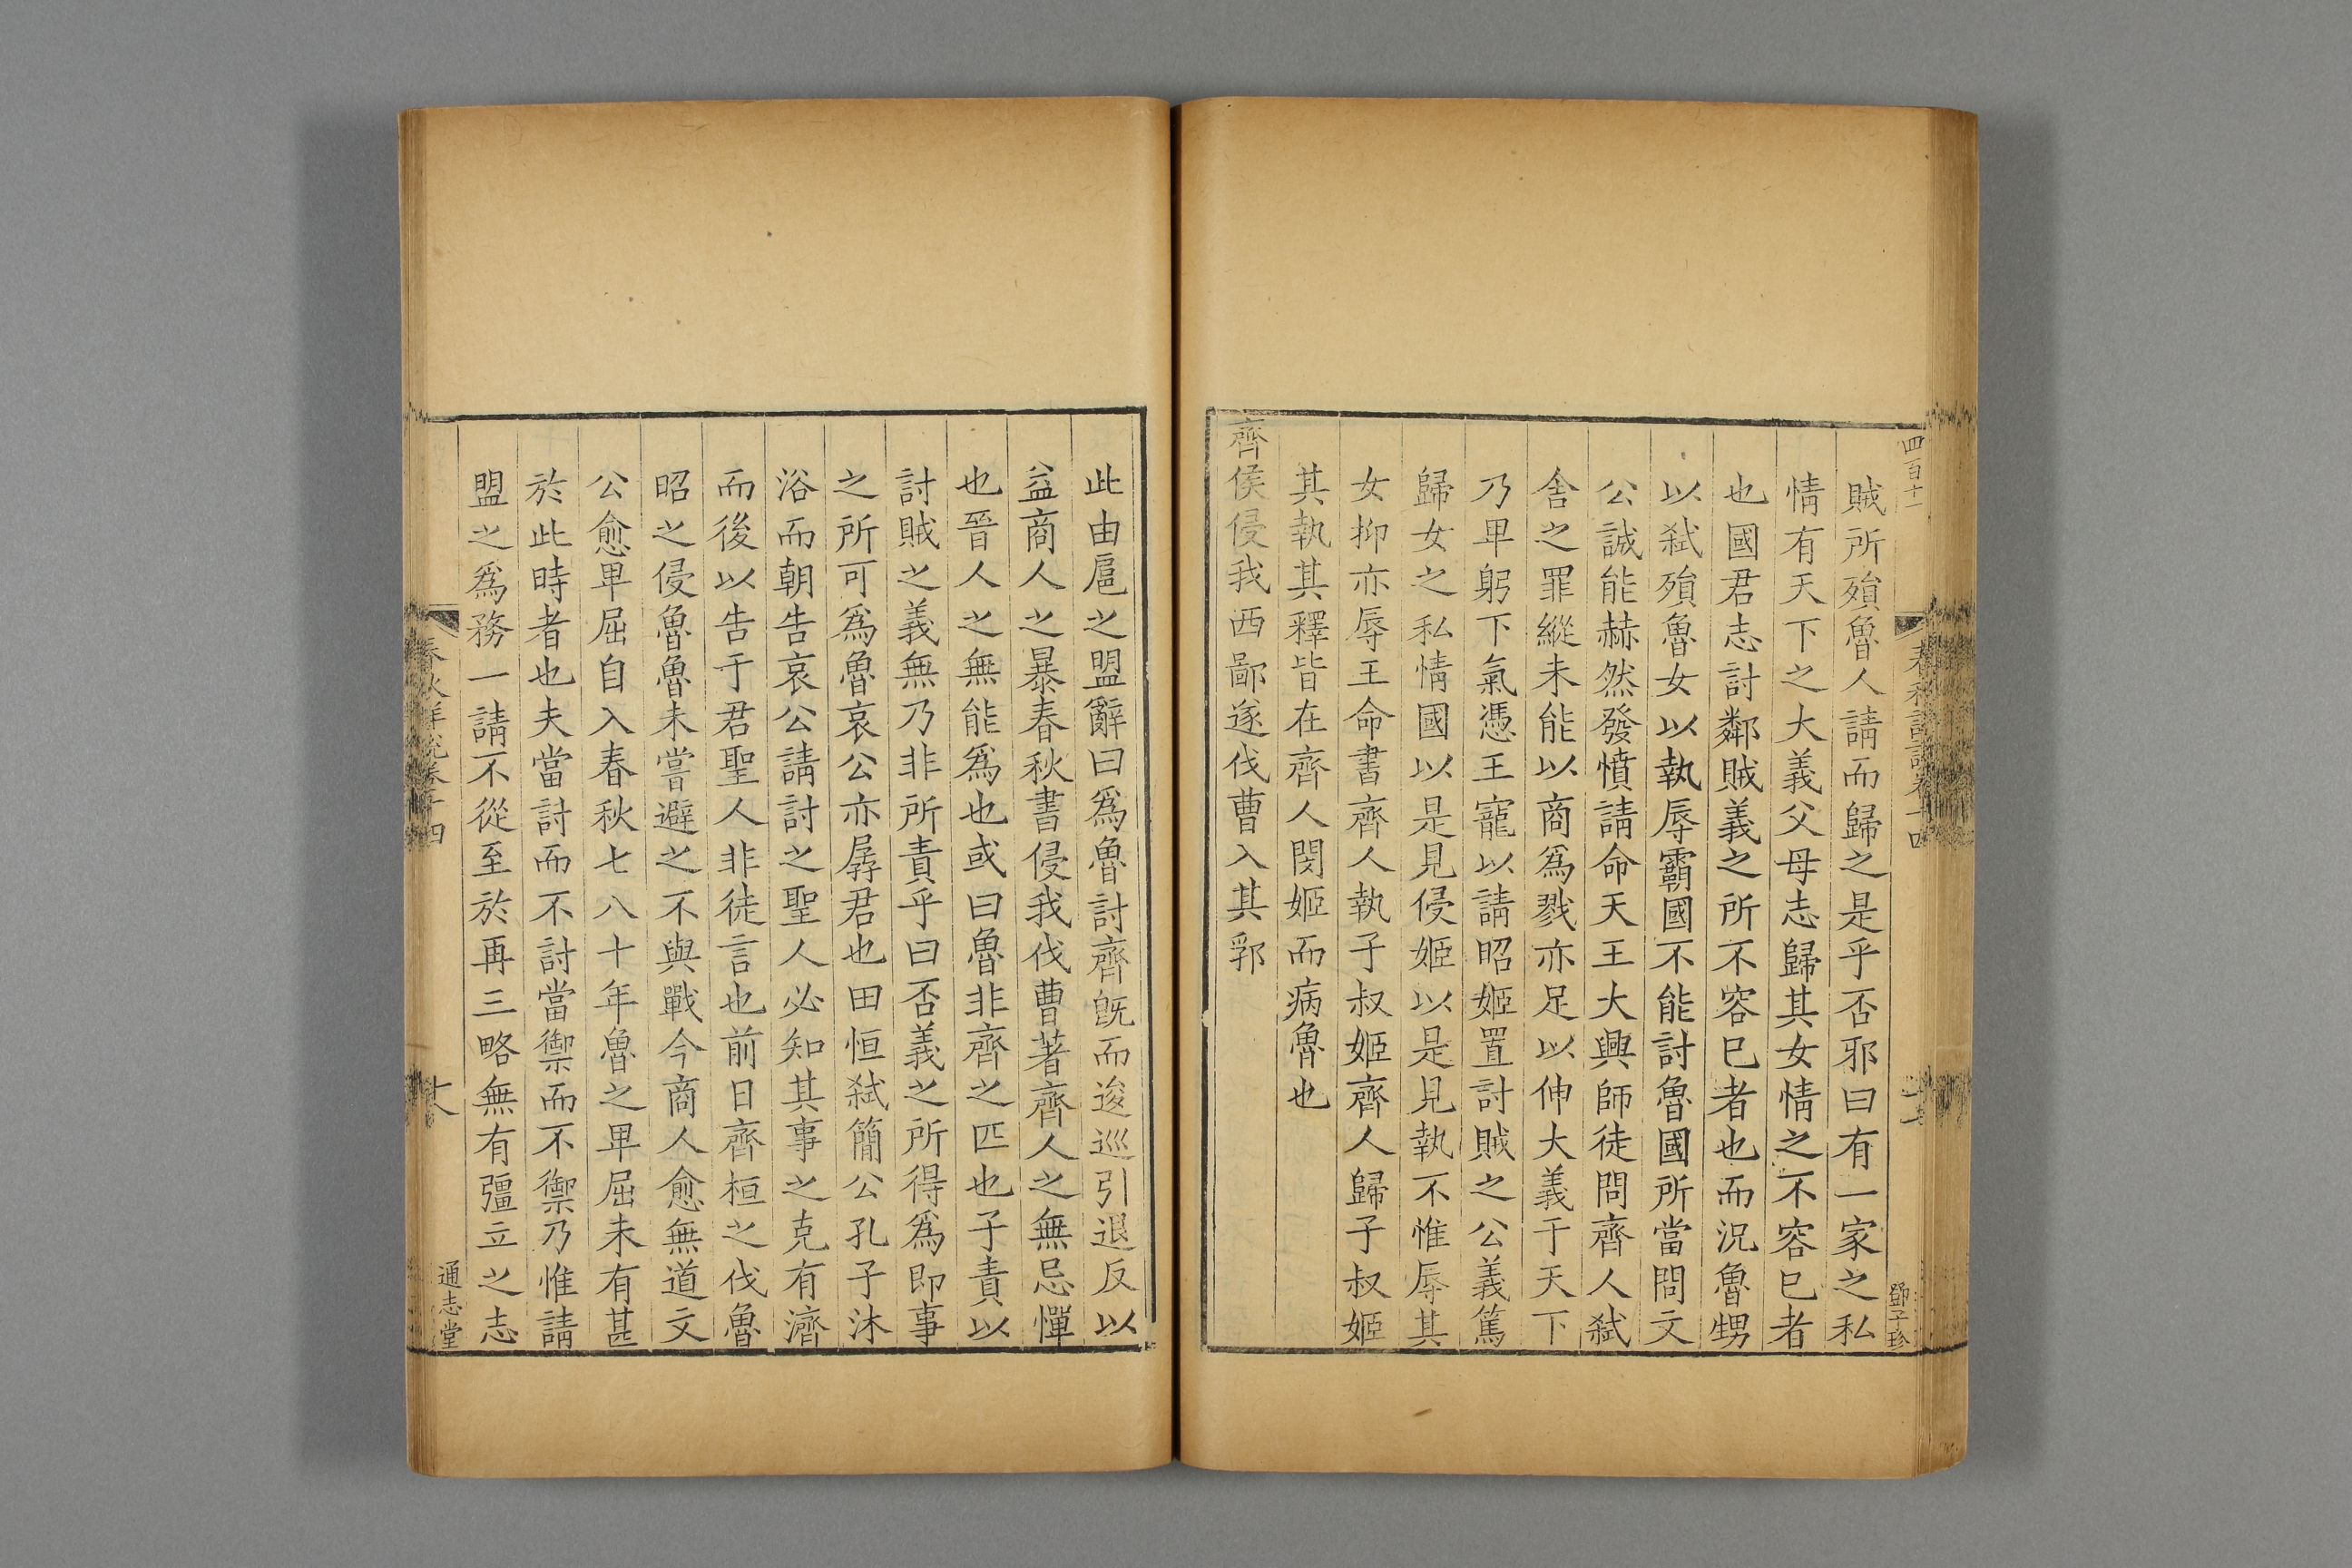 四百十一
賊所殞魯人請而歸之是乎否邪曰有一家之私
情有天下之大義父母志歸其女情之不容已者
也國君志討鄰賊義之所不容已者也而況魯甥
以弑殞魯女以執辱霸國不能討魯國所當問文
公誠能赫然發憤請命天王大興師徒問齊人弑
舍之罪縱未能以商爲戮亦足以伸大義于天下
乃卑躬下氣憑王寵以請昭姬置討賊之公義篤
歸女之私情國以是見侵姬以是見執不惟辱其
女抑亦辱王命書齊人執子叔姬齊人歸子叔姬
其執其釋皆在齊人閔姬而病魯也
齊侯侵我西鄙遂伐曹入其郛
鄧子珍
此由扈之盟辭曰爲魯討齊旣而逡巡引退反以
益商人之暴春秋書侵我伐曹著齊人之無忌憚
也晉人之無能爲也或曰魯非齊之匹也子責以
討賊之義無乃非所責乎曰否義之所得爲即事
之所可爲魯哀公亦孱君也田恒弑簡公孔子沐
浴而朝告哀公請討之聖人必知其事之克有濟
而後以告于君聖人非徒言也前日齊桓之伐魯
昭之侵魯魯未嘗避之不與戰今商人愈無道文
公愈卑屈自入春秋七八十年魯之卑屈未有甚
於此時者也夫當討而不討當禦而不禦乃惟請
盟之爲務一請不從至於再三略無有彊立之志
春秋詳說卷十四
十八
通志堂